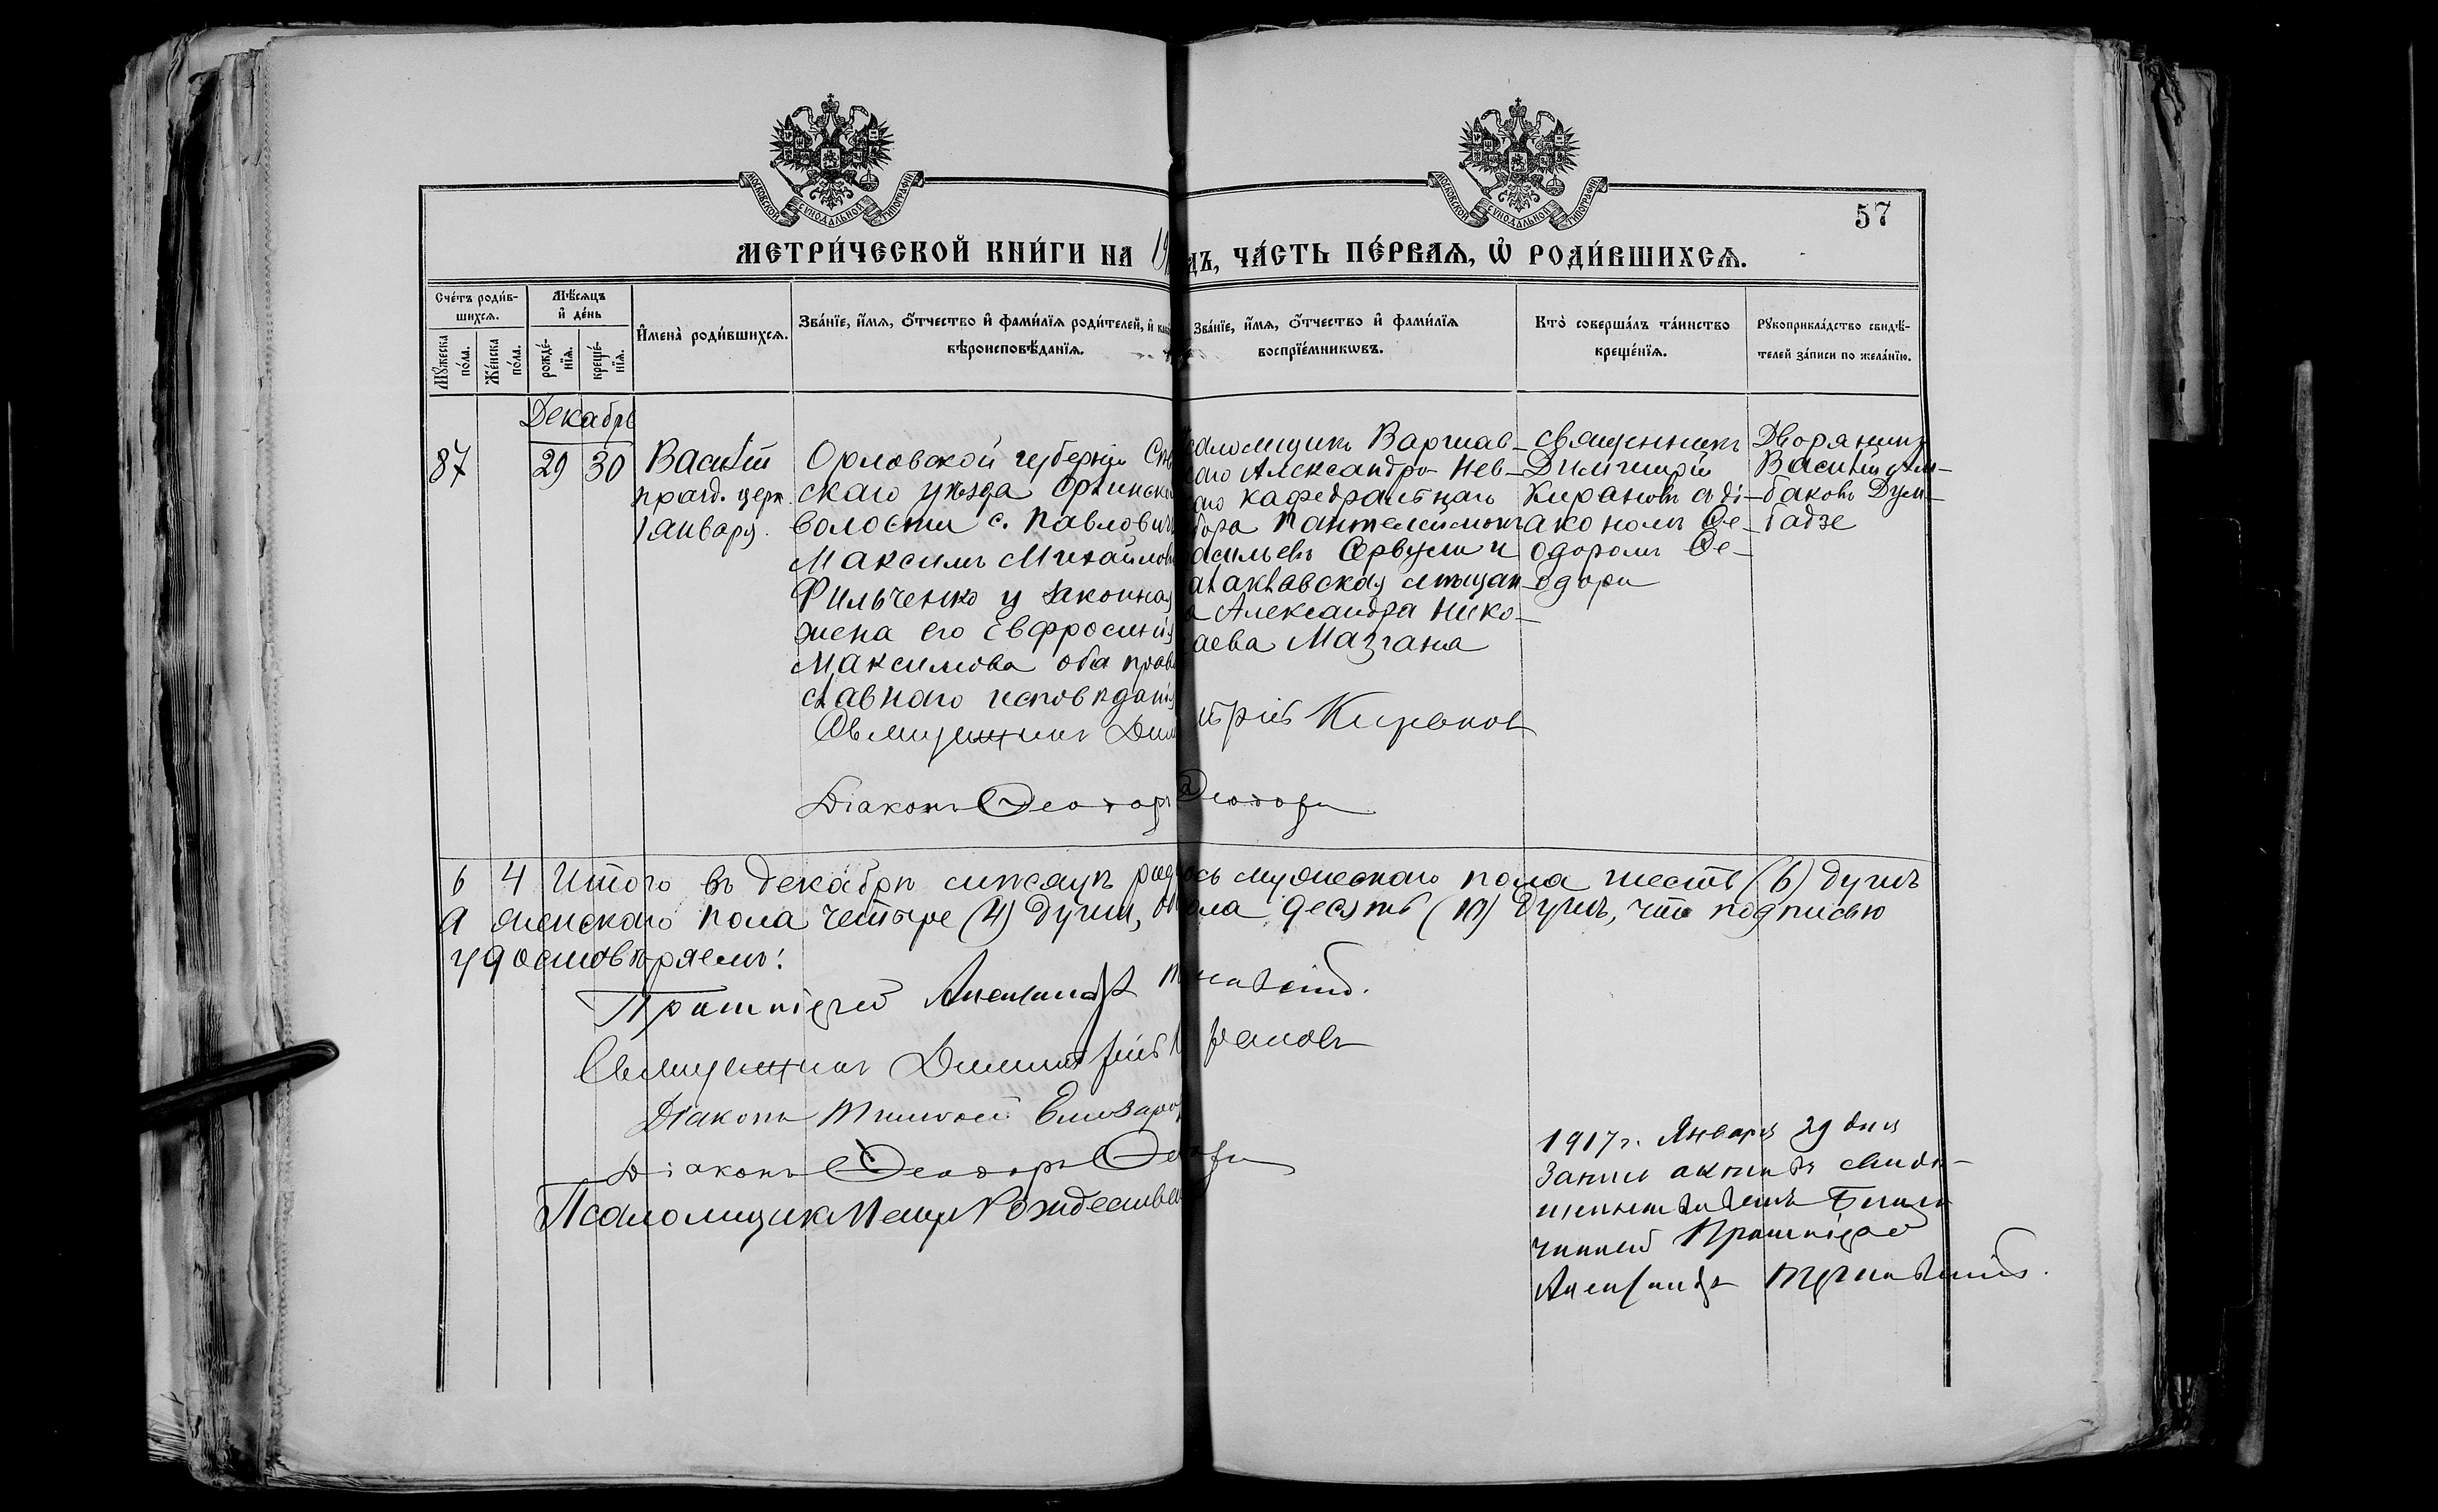 МОСКОВСКОЙ СѴНОДАЛЬНОЙ ТИПОГРАФІИ
МОСКОВСКОЙ СѴНОДАЛЬНОЙ ТИПОГРАФІИ
57
МЕТРИ́ЧЕСКОЙ КНИ́ГИ НА 19 ДЪ, ЧА́СТЬ ПЕ́РВАѦ, Ѡ҆ РОДИ́ВШИХСѦ.
Сче́тъ роди́в-
шихсѧ.
Мꙋ́жеска по́ла.
Же́нска по́ла.
Мѣ́сѧцъ
и҆ де́нь
рожде́-
нїѧ.
креще́-
нїѧ.
И҆мена̀ роди́вшихсѧ.
Зва́нїе, и҆́мѧ, ѻ҆́тчество и҆ фами́лїѧ роди́телей, и҆
вѣроисповѣ́данїѧ.
Зва́нїе, и҆́мѧ, ѻ҆́тчество и҆ фами́лїѧ
воспрїе́мникѡвъ.
Кто̀ соверша́лъ та́инство
креще́нїѧ.
Рꙋкоприкла́дство свидѣ́-
телей за́писи по жела́нїю.
Декабрь
87 29 30
Василій
празд. церк.
1 января.
Орловской губерніи Сѣв
скаго уѣзда
волости с. Павлович
Максимъ Михайлов
Фильченко и законная
жена его Евфросинія
Максимова оба право
славнаго исповѣданія
саломщикъ Варшав-
скаго Александро-Нев-
скаго кафедральнаго
бора Пантелеимонъ
асильевъ Сорвули и
мѣщан-
а Александра Нико-
аева Мазгана
Священникъ
Димитрій
Кирановъ съ ді-
акономъ Ѳе-
одоромъ Ѳе-
одори
Дворянинъ
Василій
баковъ Дум-
бадзе
Священникъ Димитрій Кирановъ
Діаконъ Ѳеодоръ Ѳеодори
6 4 Итого въ декабрѣ мѣсяцѣ родилось мужескаго пола шесть (6) душъ
а женскаго пола четыре (4) души, обоего пола десять (10) душъ, что подписью
удостовѣряемъ:
Протоіерей Александръ
Священникъ Димитрій Кирановъ
Діаконъ Тимоѳей
Діаконъ Ѳеодоръ Ѳеодори
Псаломщикъ Петръ Рождествен
1917 г. Января 29 дня
Запись актовъ свидѣ-
тельствовалъ Благо
чинный Протоіерей
Александръ